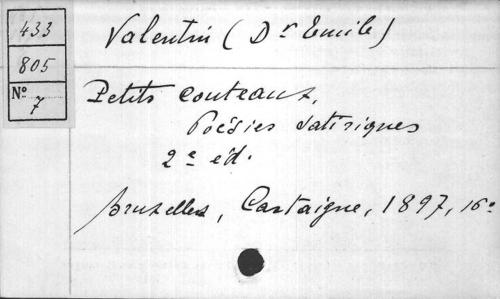 433
805
Nº 7
Valentin (Dr Emile)
Petits couteaux,
Poésies satiriques
2e éd.
Bruxelles, Castaigne, 1897, 16º